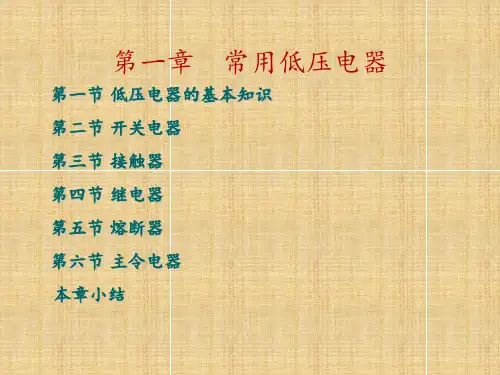 第一章 常用低压电器
第一节 低压电器的基本知识
第二节 开关电器
第三节 接触器
第四节 继电器
第五节 熔断器
第六节 主令电器
本章小结